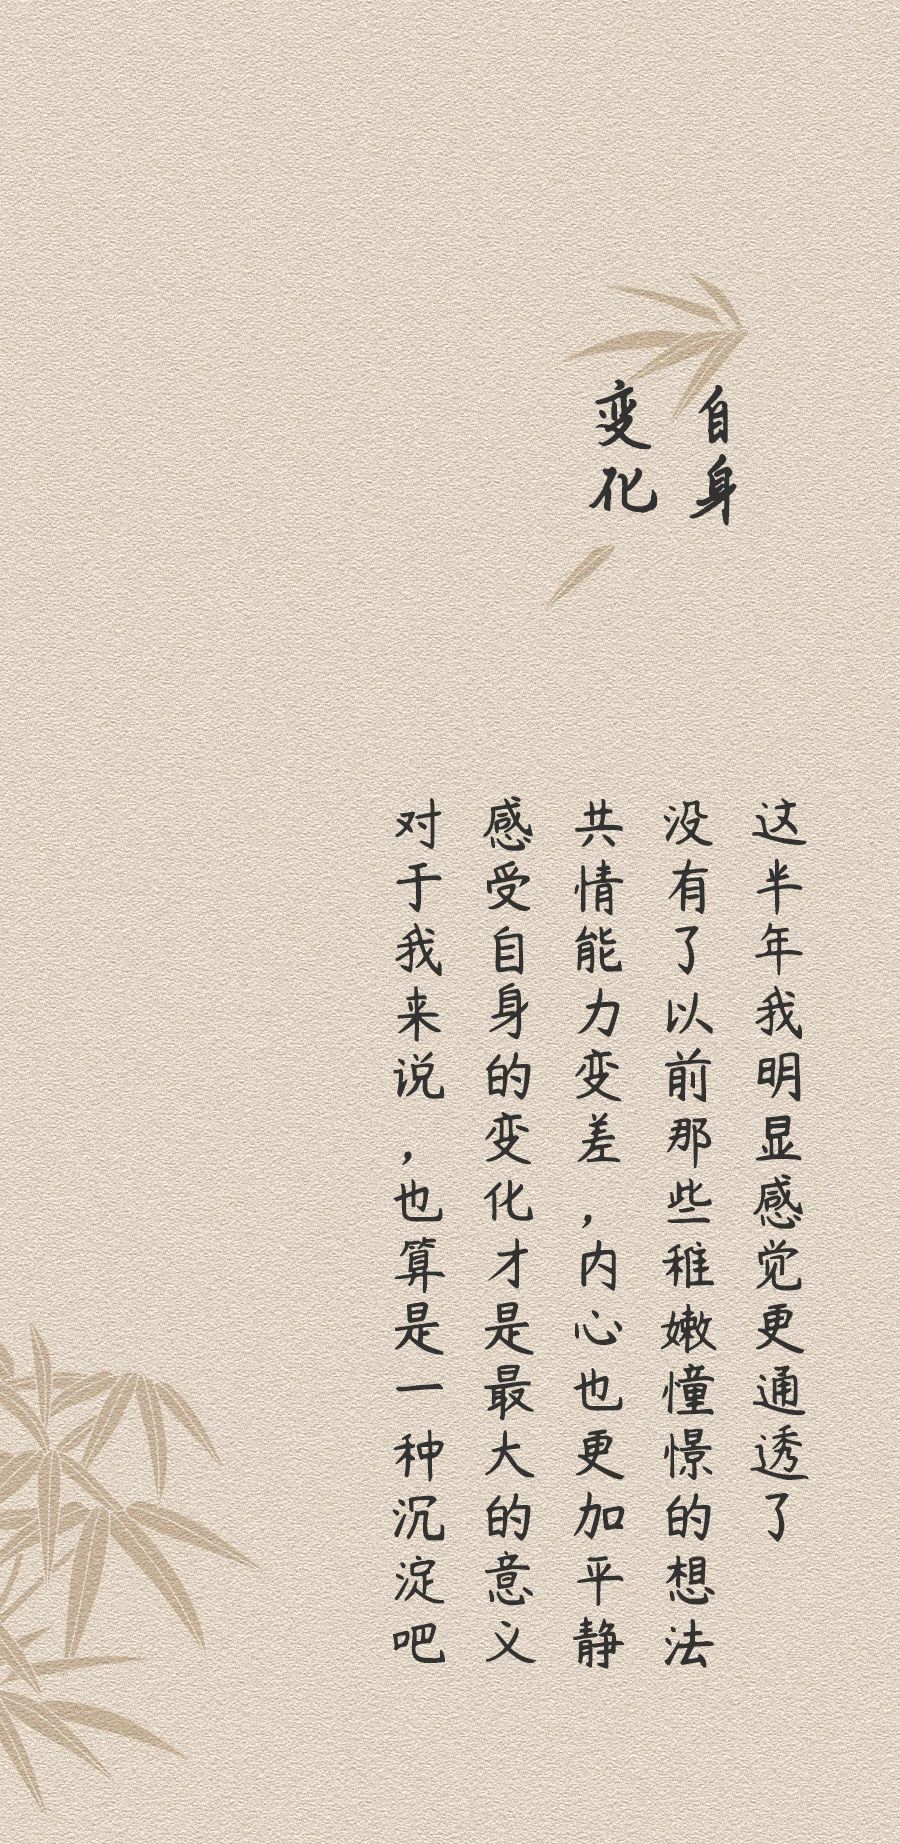 自身
变化
这半年我明显感觉更通透了
没有了以前那些稚嫩憧憬的想法
共情能力变差，内心也更加平静
感受自身的变化才是最大的意义
对于我来说，也算是一种沉淀吧